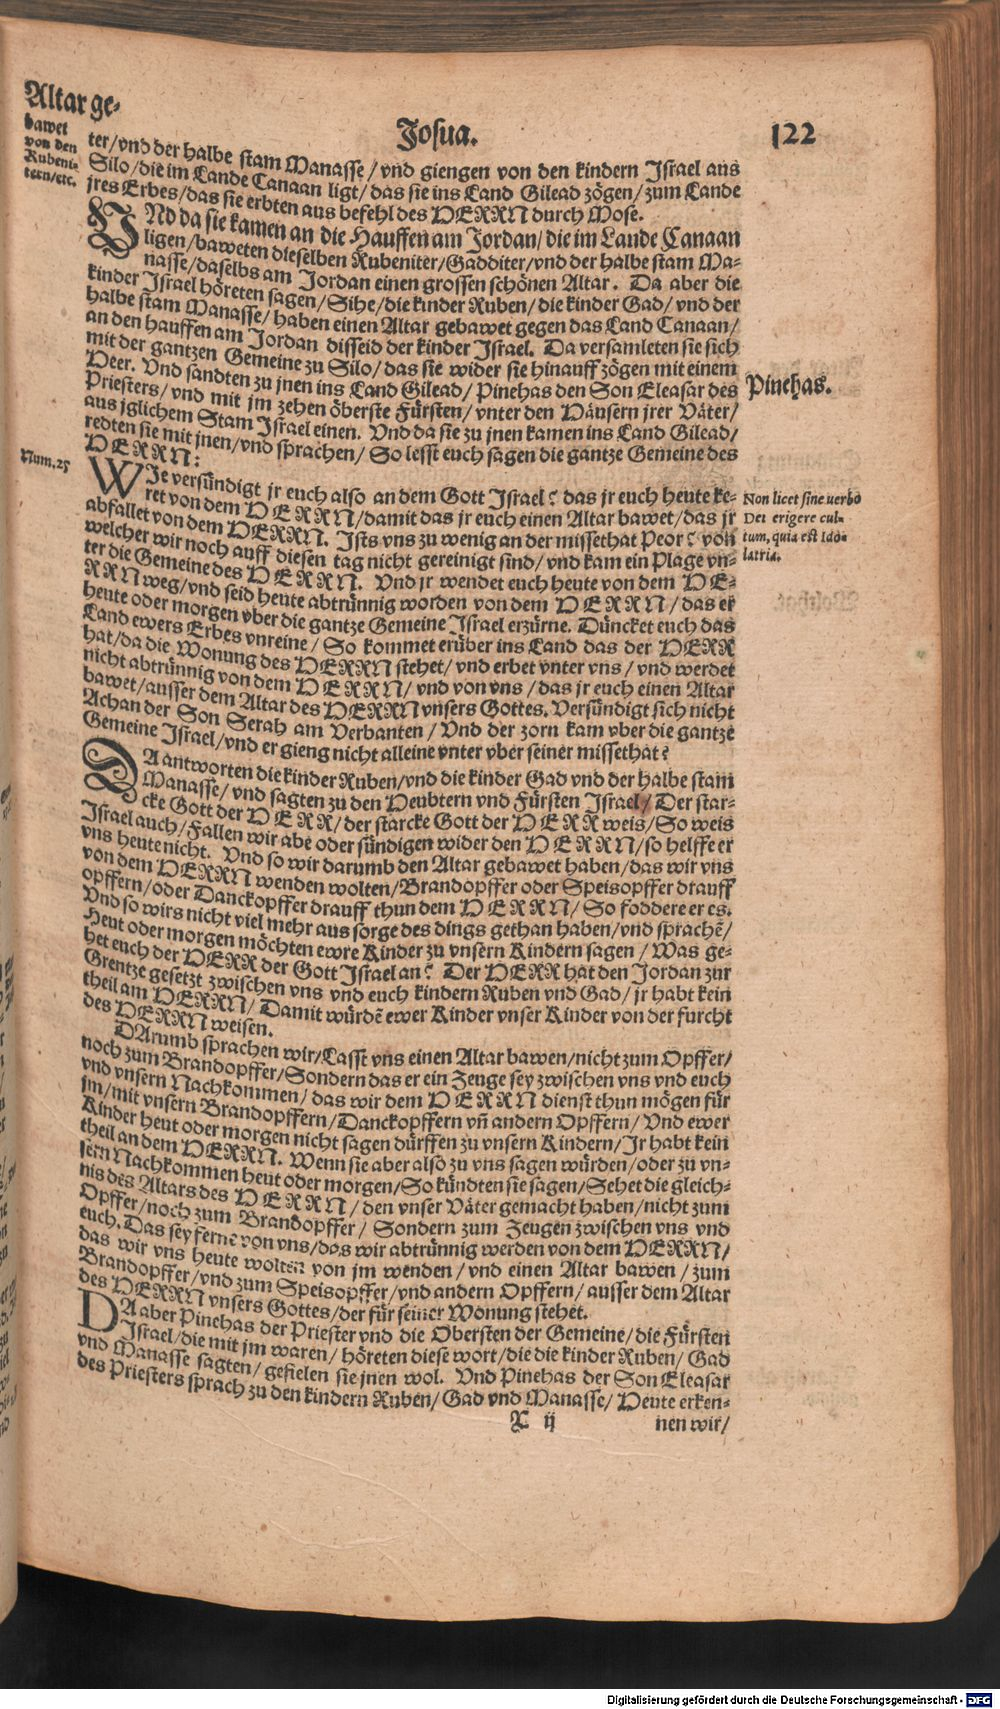 Josua.
122
Altar ge-
bawet
von den
Rubeni-
tern/etc.
ter/vnd der halbe stam Manasse/vnd giengen von den kindern Israel aus
Silo/die im Lande Canaan ligt/das sie ins Land Gilead zögen/zum Lande
jres Erbes/das sie erbten aus befehl des HERRN durch Mose.
VND da sie kamen an die Hauffen am Jordan/die im Lande Canaan
ligen/baweten dieselben Rubeniter/Gadditer/vnd der halbe stam Ma-
nasse/daselbs am Jordan einen grossen schönen Altar. Da aber die
kinder Israel höreten sagen/Sihe/die kinder Ruben/die kinder Gad/vnd der
halbe stam Manasse/haben einen Altar gebawet gegen das Land Canaan/
an den hauffen am Jordan disseid der kinder Israel. Da versamleten sie sich
mit der gantzen Gemeine zu Silo/das sie wider sie hinauff zögen mit einem
Heer. Vnd sandten zu jnen ins Land Gilead/Pinehas den Son Eleasar des
Pinehas.
Priesters/vnd mit jm zehen öberste Fürsten/vnter den Häusern jrer Väter/
aus jglichem Stam Israel einen. Vnd da sie zu jnen kamen ins Land Gilead/
redten sie mit jnen/vnd sprachen/So lesst euch sagen die gantze Gemeine des
HERRN:
Num. 25
WIe versündigt jr euch also an dem Gott Israel? das jr euch heute ke-
ret von dem HERRN/damit das jr euch einen Altar bawet/das jr
abfallet von dem HERRN. Ists vns zu wenig an der missethat Peor? von
welcher wir noch auff diesen tag nicht gereinigt sind/vnd kam ein Plage vn-
Non licet sine verbo
Dei erigere cul-
tum, quia est Ido-
latria.
ter die Gemeine des HERRN. Vnd jr wendet euch heute von dem HE-
RRN weg/vnd seid heute abtrünnig worden von dem HERRN/das er
heute oder morgen vber die gantze Gemeine Israel erzürne. Düncket euch das
Land ewers Erbes vnreine/So kommet erüber ins Land das der HERR
hat/da die Wonung des HERRN stehet/vnd erbet vnter vns/vnd werdet
nicht abtrünnig von dem HERRN/vnd von vns/das jr euch einen Altar
bawet/ausser dem Altar des HERRN vnsers Gottes. Versündigt sich nicht
Achan der Son Serah am Verbanten/Vnd der zorn kam vber die gantze
Gemeine Israel/vnd er gieng nicht alleine vnter vber seiner missethat?
DA antworten die kinder Ruben/vnd die kinder Gad vnd der halbe stam
Manasse/vnd sagten zu den Heubtern vnd Fürsten Israel/Der star-
cke Gott der HERR/der starcke Gott der HERR weis/So weis
Israel auch/Fallen wir abe oder sündigen wider den HERRN/so helffe er
vns heute nicht. Vnd so wir darumb den Altar gebawet haben/das wir vns
von dem HERRN wenden wolten/Brandopffer oder Speisopffer drauff
opffern/oder Danckopffer drauff thun dem HERRN/So foddere er es.
Vnd so wirs nicht viel mehr aus sorge des dings gethan haben/vnd sprachē/
Heut oder morgen möchten ewre Kinder zu vnsern Kindern sagen/Was ge-
het euch der HERR der Gott Israel an? Der HERR hat den Jordan zur
Grentze gesetzt zwischen vns vnd euch kindern Ruben vnd Gad/jr habt kein
theil am HERRN/Damit würdē ewer Kinder vnser Kinder von der furcht
des HERRN weisen.
DArumb sprachen wir/Lasst vns einen Altar bawen/nicht zum Opffer/
noch zum Brandopffer/Sondern das er ein Zeuge sey zwischen vns vnd euch
vnd vnsern Nachkommen/das wir dem HERRN dienst thun mögen für
jm/mit vnsern Brandopffern/Danckopffern vñ andern Opffern/Vnd ewer
Kinder heut oder morgen nicht sagen dürffen zu vnsern Kindern/Jr habt kein
theil an dem HERRN. Wenn sie aber also zu vns sagen würden/oder zu vn-
sern Nachkommen heut oder morgen/So kündten sie sagen/Sehet die gleich-
nis des Altars des HERRN/den vnser Väter gemacht haben/nicht zum
Opffer/noch zum Brandopffer/Sondern zum Zeugen zwischen vns vnd
euch. Das sey ferne von vns/das wir abtrünnig werden von dem HERRN/
das wir vns heute wolten von jm wenden/vnd einen Altar bawen/zum
Brandopffer/vnd zum Speisopffer/vnd andern Opffern/ausser dem Altar
des HERRN vnsers Gottes/der für seiner Wonung stehet.
DA aber Pinehas der Priester vnd die Obersten der Gemeine/die Fürsten
Israel/die mit jm waren/höreten diese wort/die die kinder Ruben/Gad
vnd Manasse sagten/gefielen sie jnen wol. Vnd Pinehas der Son Eleasar
des Priesters sprach zu den kindern Ruben/Gad vnd Manasse/Heute erken-
X ij
nen wir/
Digitalisierung gefördert durch die Deutsche Forschungsgemeinschaft - DFG